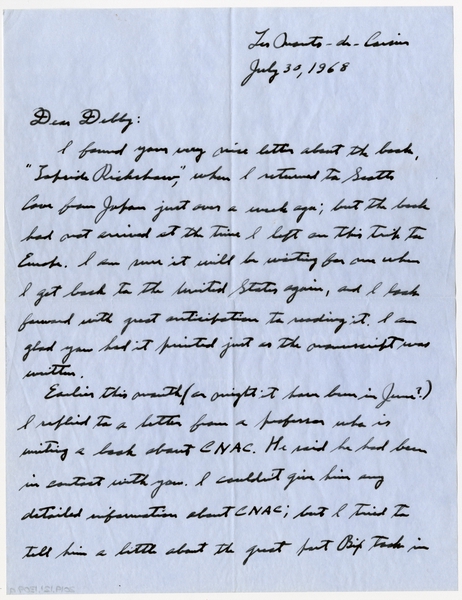 Les Monts-de-Corsier
July 30, 1968
Dear Debby:
I found your very nice letter about the book,
"Topside Rickshaw," when I returned to Scotts
Cove from Japan just over a week ago; but the book
had not arrived at the time I left on this trip to
Europe. I am sure it will be waiting for me when
I get back to the United States again, and I look
forward with great anticipation to reading it. I am
glad you had it printed just as the manuscript was
written.
Earlier this month (or might it have been in June?)
I replied to a letter from a professor who is
writing a book about CNAC. He said he had been
in contact with you. I couldn't give him any
detailed information about CNAC; but I tried to
tell him a little about the great part Bix took in